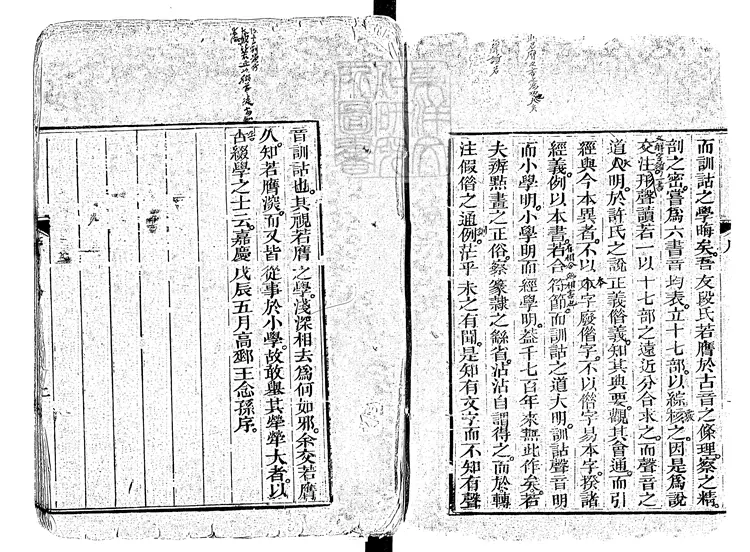 而訓詁之學晦矣。吾友段氏若膺於古音之條理。察之精。
剖之密。嘗爲六書音均表。立十七部。以綜核之。因是爲說
文注。形聲讀若。一以十七部之遠近分合求之。而聲音之
道大明。於許氏之說。正義借義。知其典要。觀其會通。而引
經與今本異者。不以本字廢借字。不以借字易本字。揆諸
經義。例以本書。若合符節。而訓詁之道大明。訓詁聲音明
而小學明。小學明而經學明。蓋千七百年來無此作矣。若
夫辨點畫之正俗。察篆隸之緐省。沾沾自謂得之。而於轉
注假借之通例。茫乎未之有聞。是知有文字而不知有聲
音訓詁也。其視若膺之學。淺深相去爲何如邪。余交若膺
久。知若膺深。而又皆從事於小學。故敢舉其犖犖大者。以
告綴學之士云。嘉慶戊辰五月高郵王念孫序。